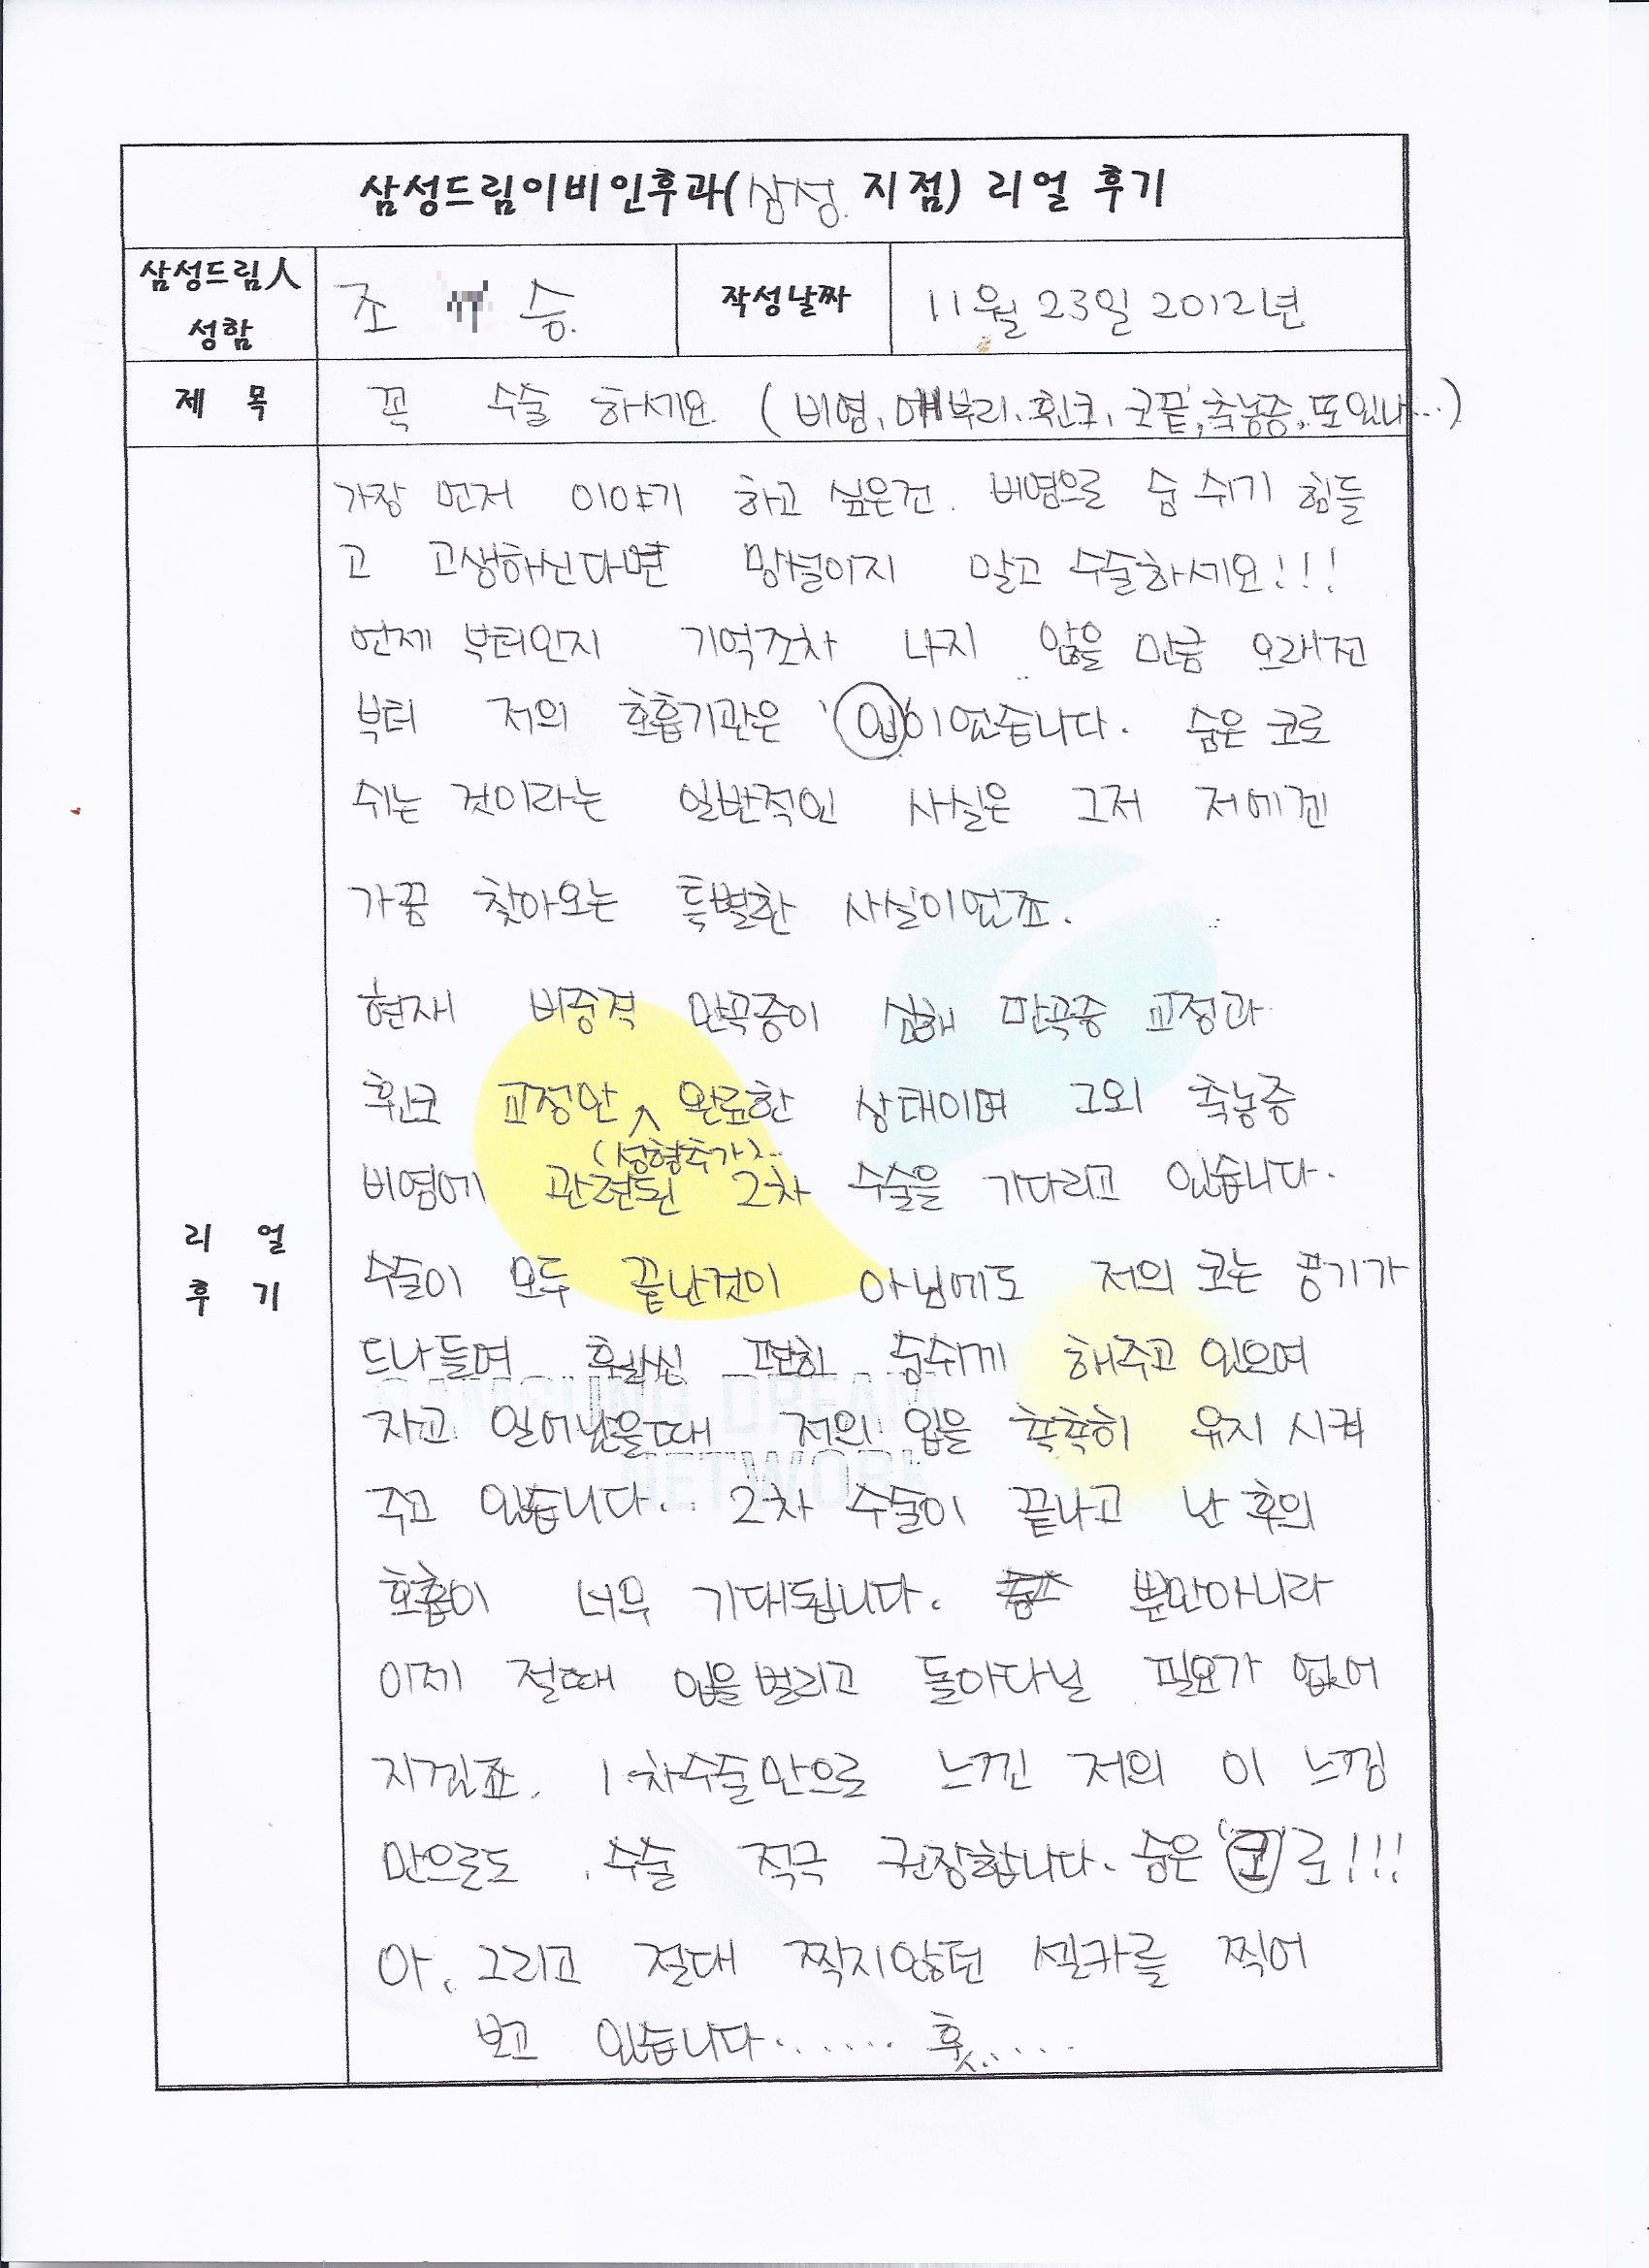 삼성드림이비인후과(삼성 지점) 리얼 후기
삼성드림人 성함
조 승
작성날짜
11월 23일 2012년
제 목
꼭 수술 하세요. (비염, 매부리, 휜코, 코끝, 축농증, 또있나...)
리 얼 후 기
가장 먼저 이야기 하고 싶은건. 비염으로 숨 쉬기 힘들
고 고생하신다면 망설이지 말고 수술하세요!!!
언제 부터인지 기억조차 나지 않을 만큼 오래전
부터 저의 호흡기관은 '입'이었습니다. 숨은 코로
쉬는 것이라는 일반적인 사실은 그저 저에겐
가끔 찾아오는 특별한 사실이였죠.
현재 비중격 만곡증이 심해 만곡증 교정과
휜코 교정만 완료한 상태이며 그외 축농증
(성형추가)..
비염에 관련된 2차 수술을 기다리고 있습니다.
수술이 모두 끝난것이 아님에도 저의 코는 공기가
드나들며 훨씬 편히 숨쉬게 해주고 있으며
자고 일어났을때 저의 입을 촉촉히 유지 시켜
주고 있습니다.. 2차 수술이 끝나고 난 후의
호흡이 너무 기대됩니다. 뿐만아니라
이제 절때 입을 벌리고 돌아다닐 필요가 없어
지겠죠. 1차수술만으로 느낀 저의 이 느낌
만으로도 수술 적극 권장합니다. 숨은 '코'로!!!
아, 그리고 절대 찍지않던 셀카를 찍어
보고 있습니다....... 훗.....
SAMSUNG DREAM
NETWORK